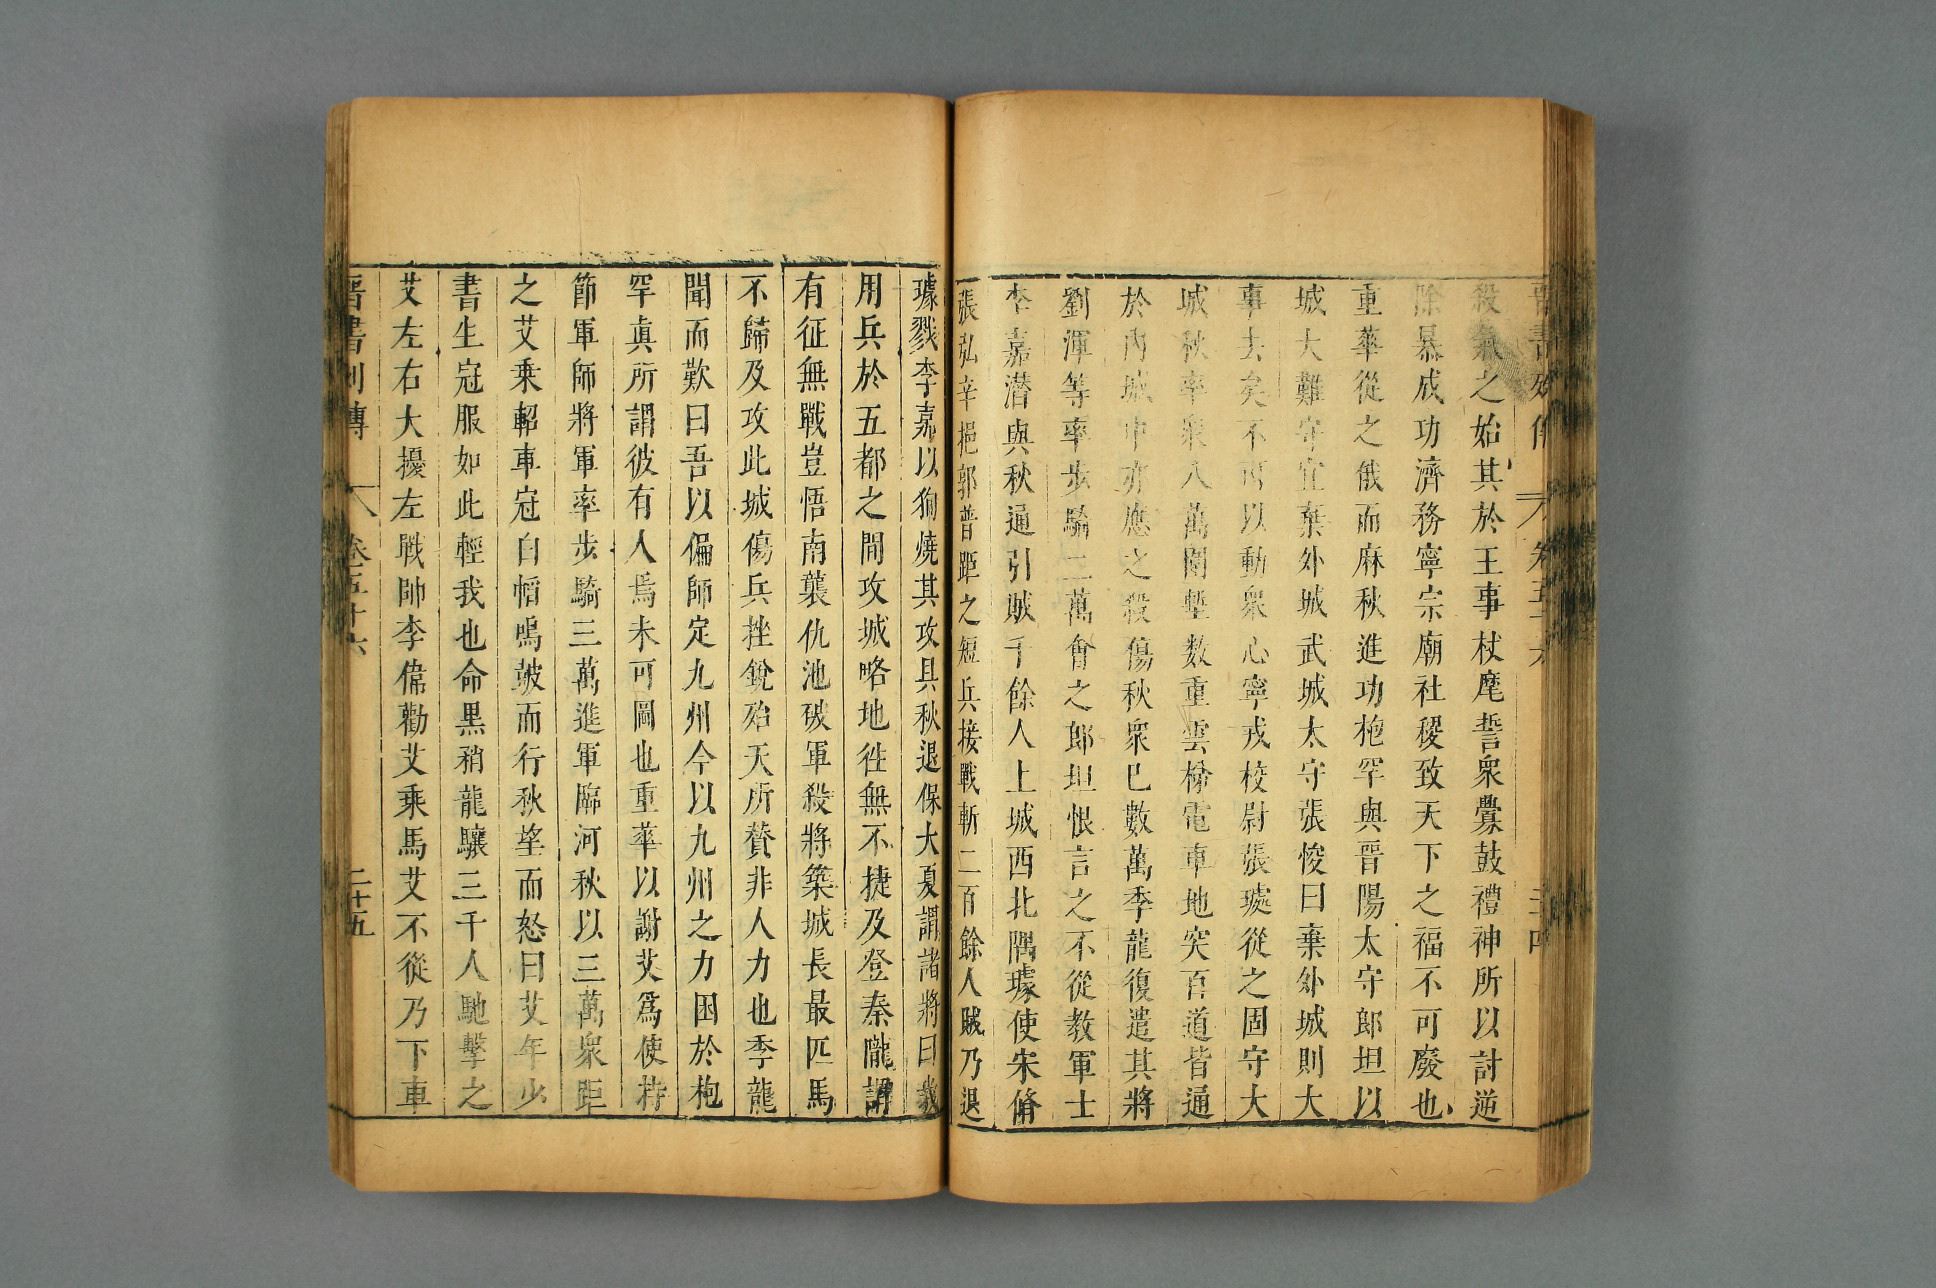 晉書列傳 卷五十六 二十四
殺氣之始其於王事杖麾誓衆釁鼓禮神所以討逆
除暴成功濟務寧宗廟社稷致天下之福不可廢也
重華從之俄而麻秋進功枹罕與晉陽太守郎坦以
城大難守宜棄外城武城太守張悛曰棄外城則大
事去矣不可以動衆心寧戎校尉張璩從之固守大
城秋率衆八萬圍塹数重雲梯電車地突百道皆通
於內城中亦應之殺傷秋衆已數萬季龍復遣其將
劉渾等率步騎二萬會之郎坦恨言之不從教軍士
李嘉潜與秋通引賊千餘人上城西北隅璩使宋脩
張弘辛挹郭普距之短兵接戰斬二百餘人賊乃退
璩戮李嘉以狥燒其攻具秋退保大夏謂諸將曰我
用兵於五都之間攻城略地徃無不捷及登秦隴謂
有征無戰豈悟南襲仇池破軍殺將築城長最匹馬
不歸及攻此城傷兵挫銳殆天所贊非人力也季龍
聞而歎曰吾以偏師定九州今以九州之力困於枹
罕眞所謂彼有人焉未可圖也重華以謝艾爲使持
節軍師將軍率步騎三萬進軍臨河秋以三萬衆距
之艾乘軺車冠白㡌鳴皷而行秋望而怒曰艾年少
書生冠服如此輕我也命黑矟龍驤三千人馳擊之
艾左右大擾左戰帥李偉勸艾乘馬艾不從乃下車
晉書列傳 卷五十六 二十五